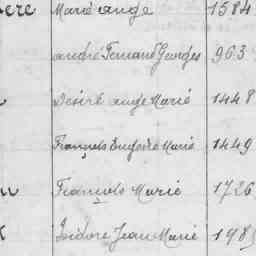 ere Marie ange 1584
andré Fernand Georges 963
Désiré ange Marie 1448
François Eugène Marie 1449
François Marie 1726
Isidore Jean Marie 198